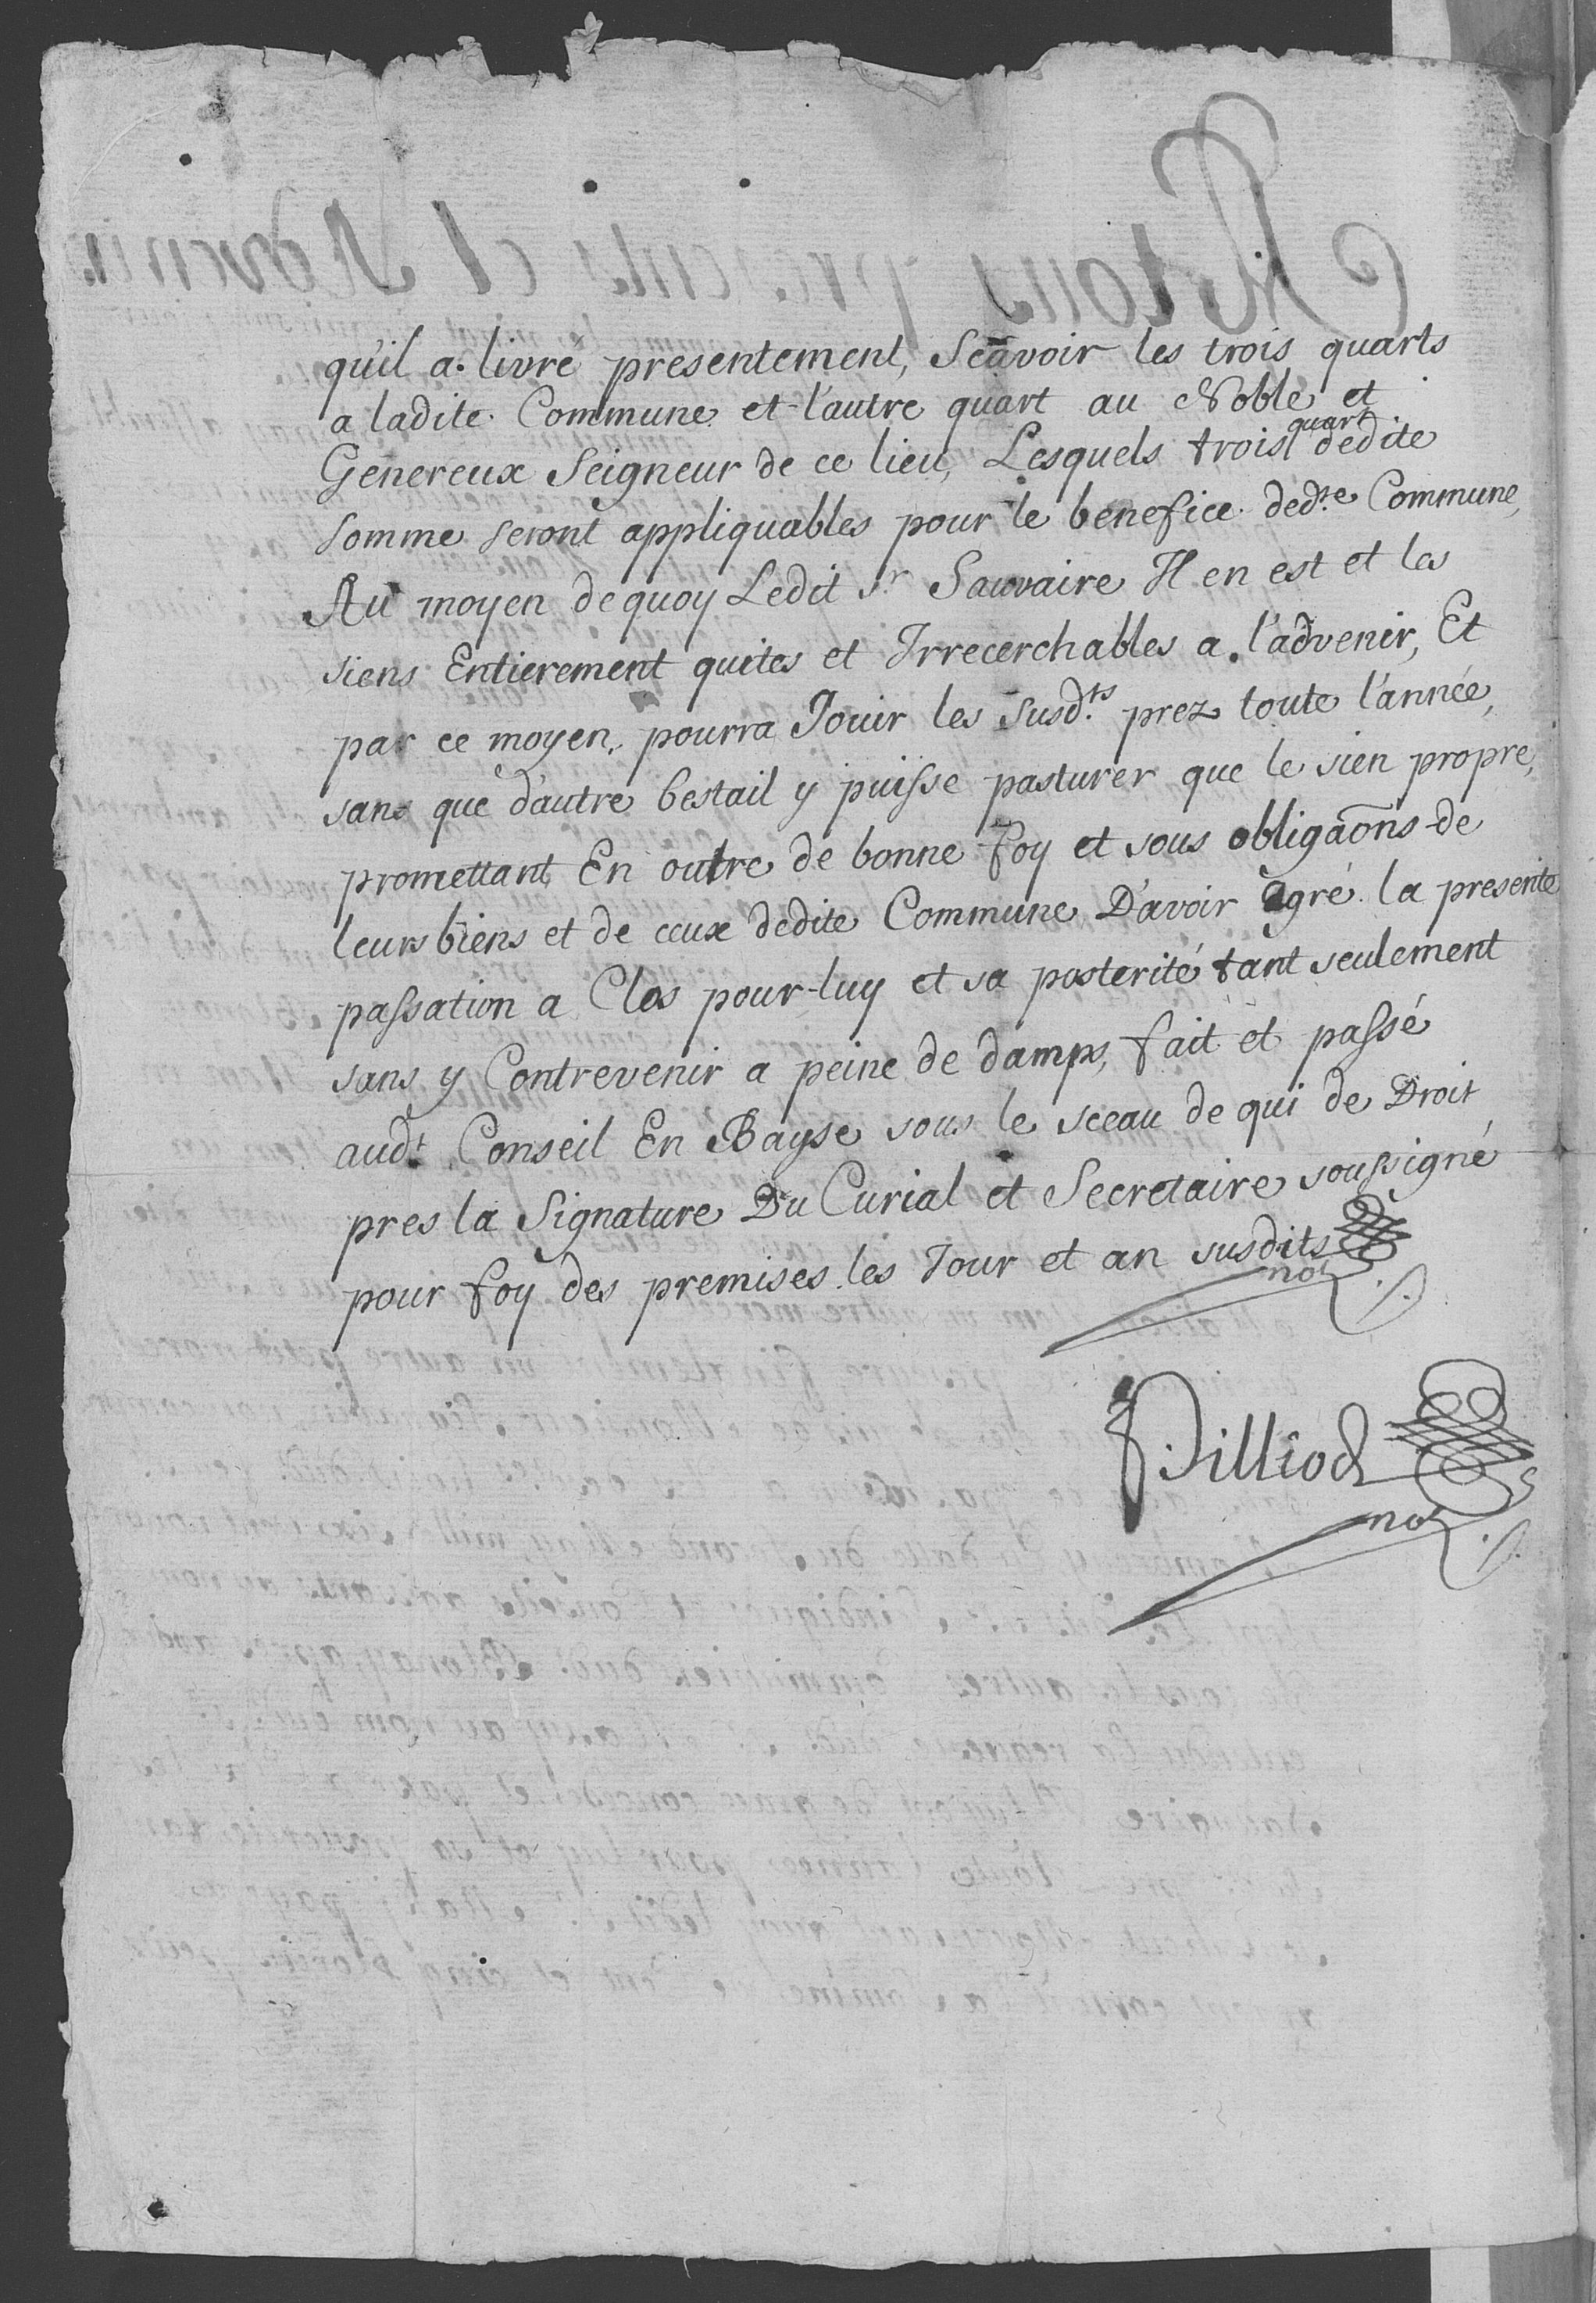 qu'il a livré presentement, Scavoir les trois quarts
a ladite Commune et l'autre quart au Noble et
Genereux Seigneur de ce lieu, Lesquels trois quart dedite
somme seront appliquables pour le benefice ded.te Commune,
Au moyen dequoy Ledit S.r Sauvaire Il en est et les
siens Entierement quites et Irrecerchables a l'advenir, Et
par ce moyen, pourra Jouir les susd.ts prez toute l'année,
sans que d'autre bestail y puisse pasturer que le sien propre,
promettant En outre de bonne foy et sous obligaõns de
leurs biens et de ceux dedite Commune D'avoir agré la presente
passation a Clos pour luy et sa posterité tant seulement
sans y Contrevenir a peine de damps, fait et passé
aud.t Conseil En Bayse sous le sceau de qui de Droit
pres la Signature Du Curial et Secretaire soussigné
pour foy des premises les Jour et an susdits
not
Pilliod
not